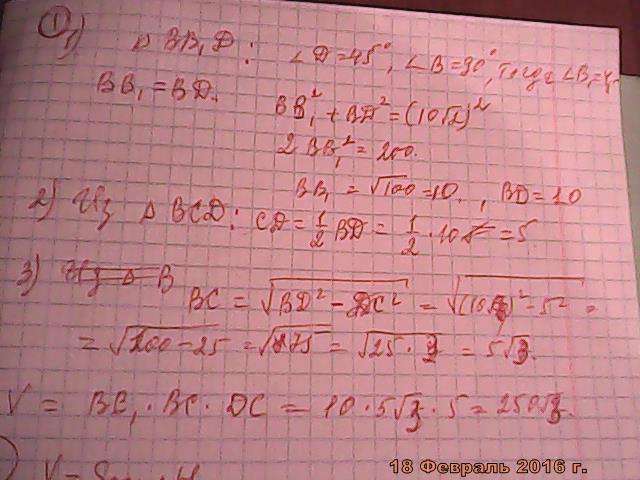 ① 1) Δ BB₁D: ∠D=45°, ∠B=90°, тогда ∠B₁=
BB₁ = BD.
BB₁² + BD² = (10√2)²
2BB₁² = 200.
BB₁ = √100 = 10. , BD = 10
2) Из Δ BCD: CD = 1/2 BD = 1/2 · 10 = 5
3) Из Δ B
BC = √(BD² − DC²) = √((10)² − 5²) =
= √(100 − 25) = √75 = √(25 · 3) = 5√3.
V = BB₁ · BC · DC = 10 · 5√3 · 5 = 250√3.
18 Февраль 2016 г.